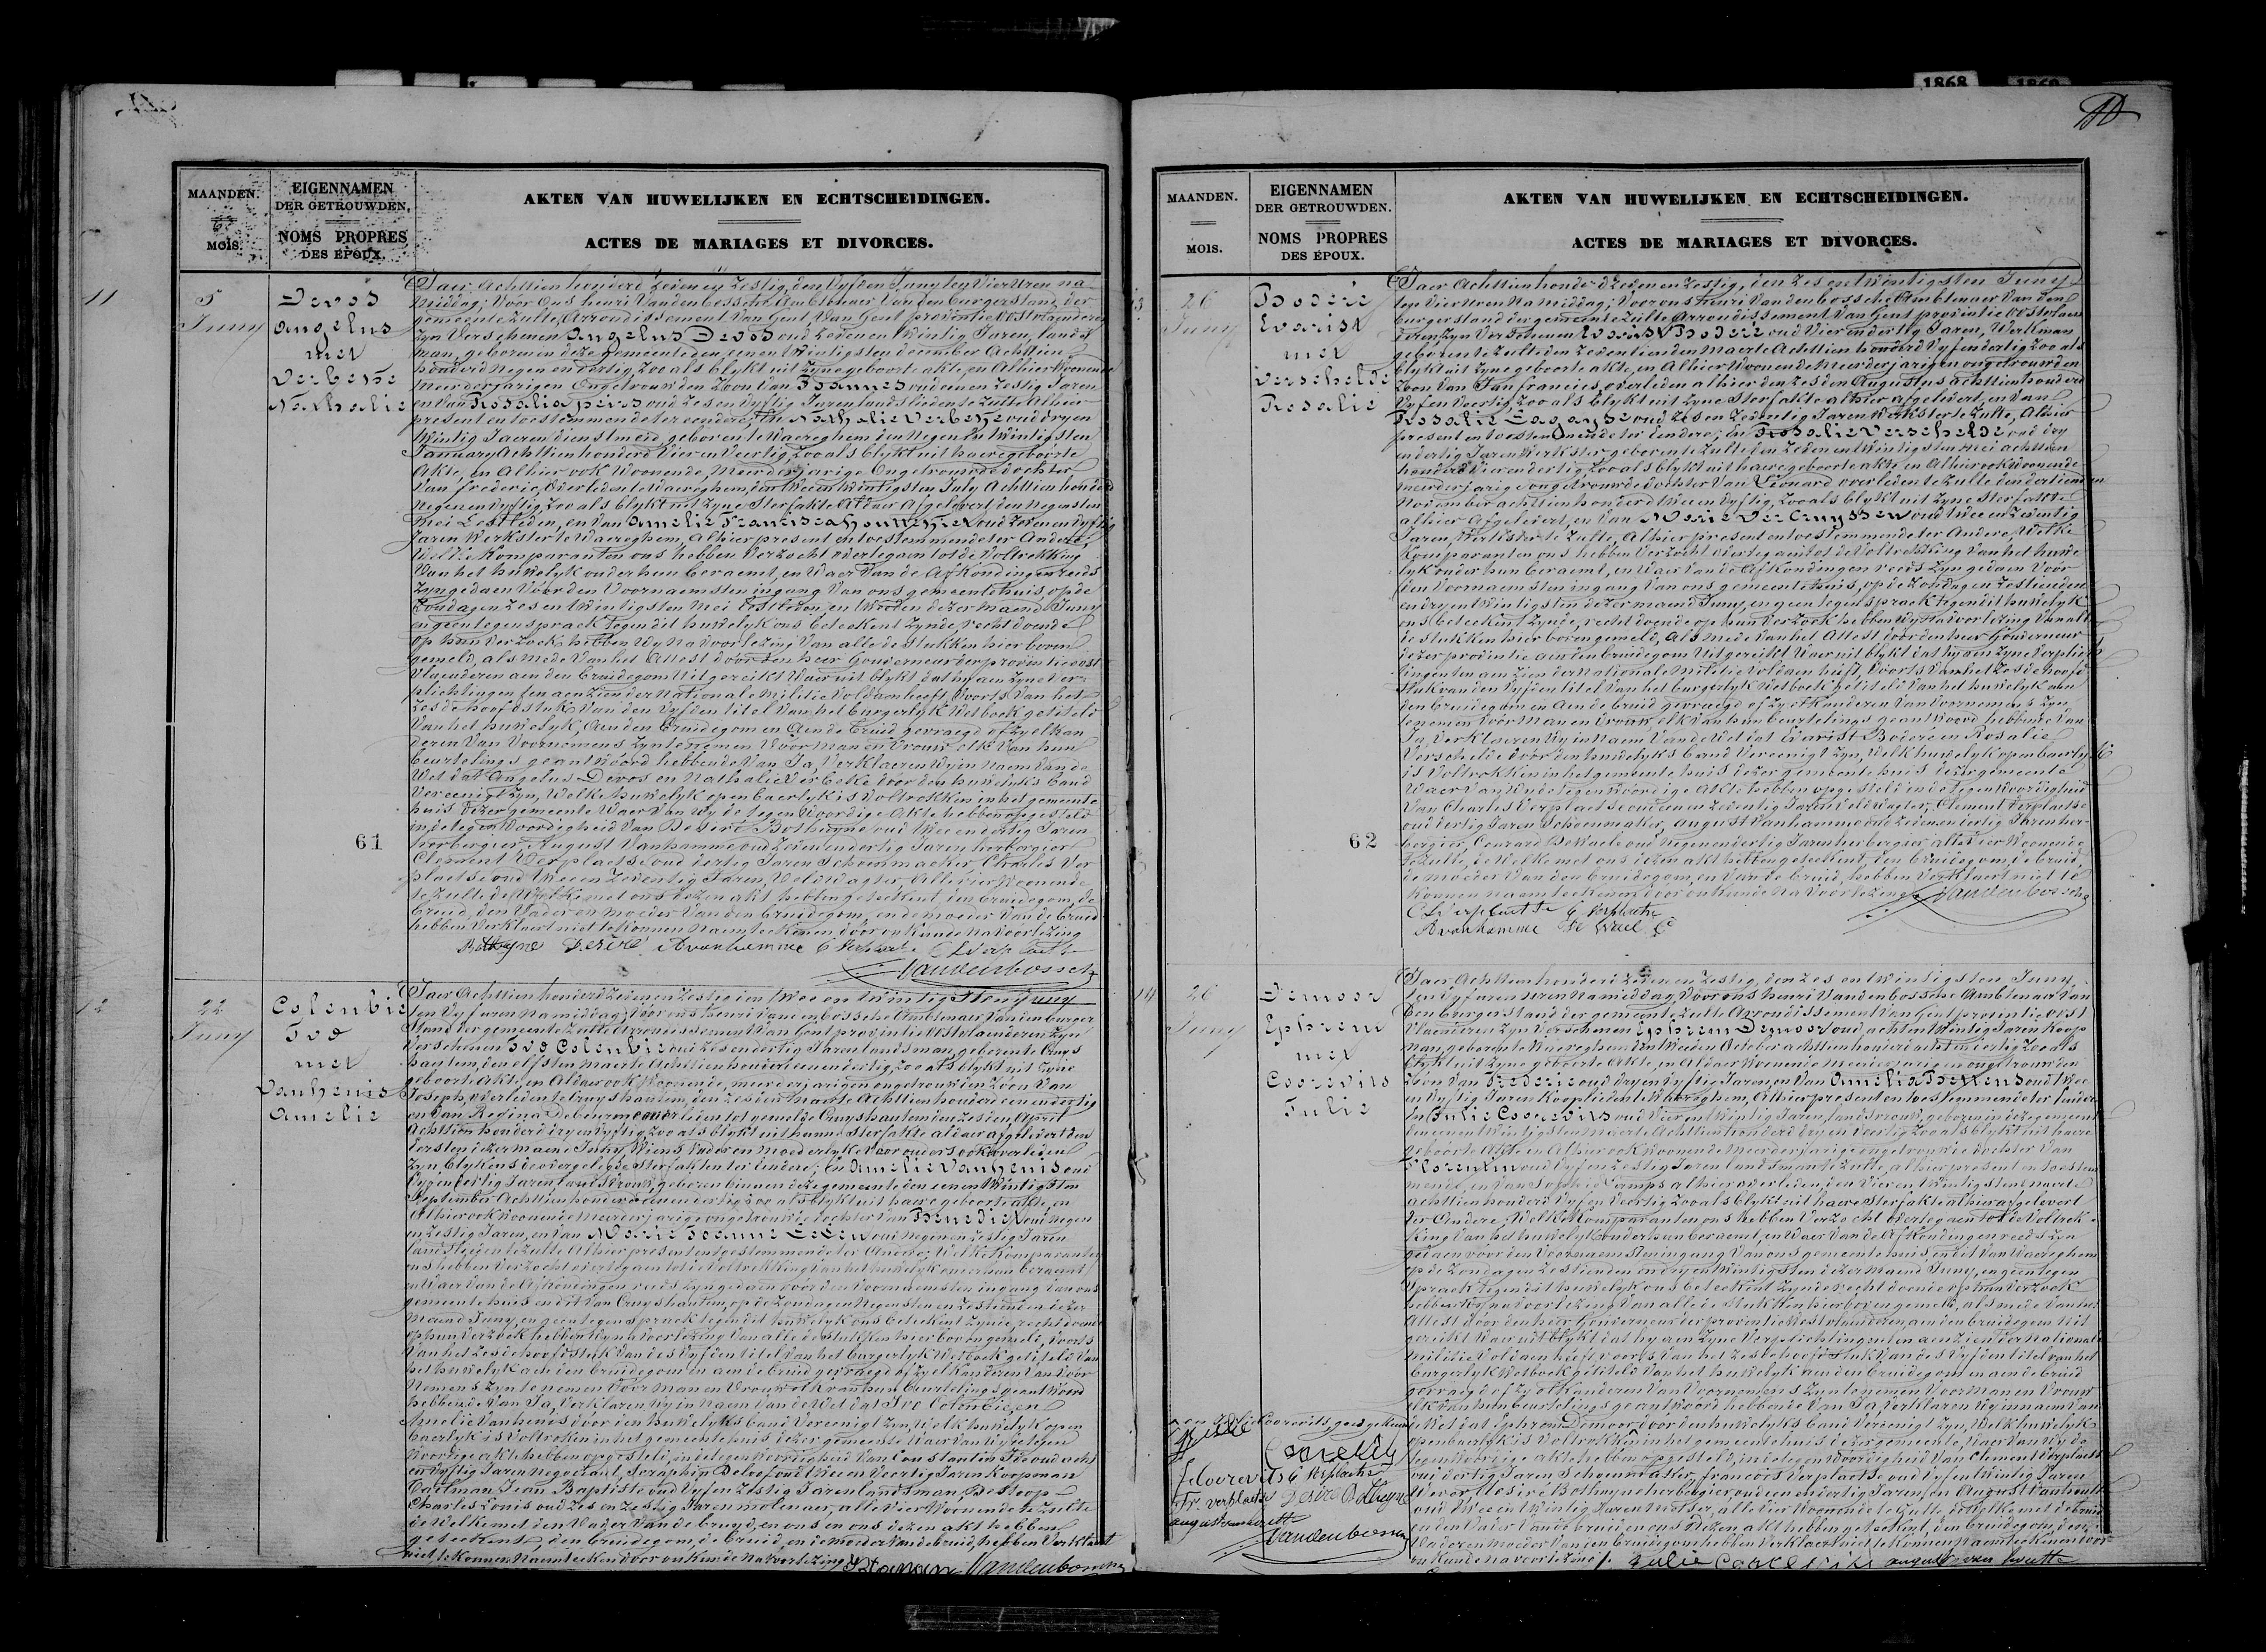 1868
1869
MAANDEN.
67
MOIS.
EIGENNAMEN
DER GETROUWDEN.
NOMS PROPRES
DES ÉPOUX.
AKTEN VAN HUWELIJKEN EN ECHTSCHEIDINGEN.
ACTES DE MARIAGES ET DIVORCES.
11
5
Juny
Devos
Angelus
met
Verbeke
Nathalie
Jaer Achttien honderd zeven en zestig, den vyfden Juny ten vier uren na
middag; Voor Ons henri Vandenbossche Ambtenaer Van den burgerstand der
gemeente Zulte, Arrondissement Van Gent, Van Gent provintie oostvlaenderen
zyn Verschenen Angelus Devos oud zeven en twintig Jaren, lands
man, geboren in deze gemeente den eenen twintigsten december Achttien
honderd negen en dertig, zoo als blykt uit zyne geboorte akte, en Alhier woonende
meerderjarigen Ongetrouwden Zoon Van Joannes oud een en zestig Jaren
present en toestemmende ter eendere; En Nathalie Verbeke oud dry en
twintig Jaeren dienstmeid, geboren te Waereghem den negen en twintigsten
January Achttien honderd vier en veertig, zoo als blykt uit haere geboorte
Akte, en Alhier ook woonende, meerderjarige Ongetrouwde dochter
Van frederic, Overleden te Waereghem, den twee en twintigsten July Achttien honderd
negen en vyftig, zoo als blykt uit zyne sterfakte Aldaer Afgeleverd den negensten
Jaren werkster te Waereghem, Alhier present en toestemmende ter Andere,
Welke komparanten ons hebben Verzocht overtegaen tot de Voltrekking
Van het huwelyk onder hun beraemt, en waer Van de Afkondingen reeds
zyn gedaen Voor den Voornaemsten ingang Van ons gemeentehuis, op de
en geen tegenspraek tegen dit huwelyk ons beteekent zynde, recht doende
op hun Verzoek hebben Wy na Voorlezing Van alle de stukken hier boven
gemeld, als mede Van het Attest door den heer Gouverneur der provintie oost
Vlaenderen aen den bruidegom uitgereikt waer uit blykt dat hy aen zyne Ver-
plichtingen ten aenzien der Nationale Militie Voldaen heeft, Voorts Van het
zesde hoofdstuk Van den Vyfden titel Van het burgerlyk Wetboek getiteld
Van het huwelyk, Aen den bruidegom en Aen de bruid gevraegd of zy elkan
deren Van Voornemens zyn te nemen Voor Man en Vrouw, elk Van hun
beurtelings geantwoord hebbende Van Ja, Verklaeren Wy in Naem Van de
Wet dat Angelus Devos en Nathalie Verbeke door den huwelyks band
Vereenigt zyn, Welke huwelyk openbaerlyk is Voltrokken in het gemeente
huis dezer gemeente waer Van wy de tegenwoordige Akte hebben opgesteld
in de tegenwoordigheid Van Desiré Bothuyne oud twee en dertig Jaren
herbergier, August Vanhamme oud zeven en dertig Jaren herbergier
Clement Verplaetse oud dertig Jaren Schoenmaeker, Charles Ver
plaetse oud twee en zeventig Jaren, Veldwagter, Alle vier woonende
te Zulte de Welke met ons dezen akt hebben geteekent, den bruidegom, de
bruid, den Vader en moeder Van den bruidegom, en de moeder Van de bruid
hebben Verklaert niet te konnen Naemteekenen, door onkunde na Voorlezing
61
Bothuyne Desiré Avanhamme
Vandenbossche
12
22
Juny
Colenbie
Ivo
met
Vanhenis
Amelie
Jaer Achttien honderd zeven en zestig den twee en twintigsten Juny
ten Vyf uren Na middag, Voor ons henri Vandenbossche Ambtenaer Van den burger
stand der gemeente Zulte Arrondissement Van Gent provintie oostvlaenderen zyn
Verschenen Ivo Colenbie oud zes en dertig Jaren landsman, geboren te Cruys
hautem, den elfsten maerte Achttien honderd een en dertig, zoo als blykt uit zyne
geboorte Akte, en Aldaer ook Woonende, meerderjarigen ongetrouwden Zoon Van
Joseph, overleden te Cruyshautem, den zesden maerte Achttien honderd een en dertig
Achttien honderd dry en vyftig, zoo als blykt uit hunne sterfakte aldaer afgelevert den
September Achttien honderd een en dertig zoo als blykt uit haere geboorte akte, en
Alhier ook woonende Meerderjarige ongetrouwde dochter Van Benedict oud negen
landslieden te Zulte Alhier present en toestemmende ter Andere; Welke komparanten
ons hebben Verzocht overtegaen tot de Voltrekking Van het huwelyk onder hun beraemt
en Waer Van de Afkondingen reeds zyn gedaen door den Voornaemsten ingang Van ons
gemeente huis en dit Van Cruyshautem, op de Zondagen Negensten en Zestienden dezer
Maend Juny, en geen tegenspraek tegen dit huwelyk ons beteekent zynde, recht doende
op hun Verzoek hebben Wy na Voorlezing Van alle de stukken hier boven gemeld, Voorts
Van het zesde hoofdstuk Van des Vyfden titel Van het burgerlyk Wetboek getiteld Van
het huwelyk aen den bruidegom en aen de bruid gevraegd of zy elkanderen Van Voor
Nemens zyn te nemen Voor Man en Vrouw elk van hun beurtelings geantwoord
hebbende Van Ja, Verklaren Wy in Naem Van de Wet dat Ivo Colenbie, en
Amelie Vanhenis door den huwelyks band Vereenigt zyn, Welk huwelyk open
baerlyk is Voltrokken in het gemeentehuis dezer gemeente, Waer Van Wy de tegen
Woordige akte hebben opgesteld, in de tegenwoordigheid Van
en Vyftig Jaren Negociant, Seraphin Deloof oud twee en Veertig Jaren koopman
Taelman Jean Baptiste oud Vyf en zestig Jaren landsman, De Stoop
Charles Louis oud zes en zestig Jaren molenaer, alle Vier Woonende te Zulte
geteekent, den bruidegom, de bruid, en de moeder Van de bruid, hebben Verklaert
niet te konnen Naemteeken door onkunde na voorlezing
MAANDEN.
MOIS.
EIGENNAMEN
DER GETROUWDEN.
NOMS PROPRES
DES ÉPOUX.
AKTEN VAN HUWELIJKEN EN ECHTSCHEIDINGEN.
ACTES DE MARIAGES ET DIVORCES.
13
26
Juny
Boderé
Evarist
met
Verschelde
Rosalie
Jaer Achttien honderd zeven en zestig, den zes en twintigsten Juny
ten Vier uren Na middag; Voor ons henri Vandenbossche Ambtenaer Van den
burgerstand der gemeente Zulte Arrondissement Van Gent provintie oostvlaen
deren zyn Verschenen Evarist Boderé oud Vier en dertig Jaren, Werkman
geboren te Zulte den zeventienden Maerte Achttien honderd
blykt uit zyne geboorte akte, en Alhier Woonende Meerderjarigen ongetrouwden
Zoon Van Jan francies, overleden alhier den zesden Augustus achttien honderd
Vyf en Veertig, zoo als blykt uit zyne sterfakte alhier afgelevert, en Van
present en toestemmende ter eendere; En Rosalie Verschelde oud dry
en dertig Jaren Werkster geboren te Zulte den zeven en twintigsten mei achttien
honderd Vier en dertig zoo als blykt uit haere geboorte akte en Alhier ook woonende
meerderjarige ongetrouwde dochter Van Léonard overleden te Zulte den dertienden
November achttien honderd twee en vyftig, zoo als blykt uit zyne sterfakte
alhier Afgelevert, en Van Marie Ver Cruyssen oud twee en zeventig
Jaren, Werkster te Zulte, Alhier present en toestemmende ter Andere, Welke
komparanten ons hebben Verzocht overtegaen tot de Voltrekking Van het huwe
lyk onder hun beraemt, en Waer Van de Afkondingen reeds zyn gedaen Voor
den Voornaemsten ingang Van ons gemeentehuis, op de Zondagen Zestienden
en dry en twintigsten dezer maend Juny, en geen tegenspraek tegen dit huwelyk
ons beteekent zynde, recht doende op hun Verzoek hebben Wy Na Voorlezing Van alle
de stukken hier boven gemeld, als mede Van het Attest door den heer Gouverneur
dezer provintie aen den bruidegom uitgereikt Waer uit blykt dat hy aen zyne Verplich
tingen ten aenzien der Nationale Militie Voldaen heeft, Voorts Van het Zesde hoofd
stuk van den Vyfden titel Van het burgerlyk Wetboek getiteld Van het huwelyk aen
den bruidegom en Aen de bruid gevraegd of zy elkanderen Van Voornemens zyn
te nemen Voor Man en Vrouw, elk Van hun beurtelings geantwoord hebbende Van
Ja, Verklaeren Wy in Naem Van de Wet dat Evarist Boderé en Rosalie
Verschelde door den huwelyks band Vereenigt zyn, Welk huwelyk openbaerlyk
is Voltrokken in het gemeente huis dezer gemeente huis dezer gemeente
Waer Van Wy de tegenwoordige Akte hebben opgesteld in de tegenwoordigheid
Van Charles Verplaetse oud een en zeventig Jaren Veldwagter, Clement Verplaetse
oud dertig Jaren Schoenmaker, August Vanhamme oud zeven en dertig Jaren her-
bergier, Conrard DeWaele oud Negen en dertig Jaren herbergier alle Vier Woonende
te Zulte, de Welke met ons dezen akt hebben geteekent, den bruidegom, de bruid,
de moeder Van den bruidegom, en Van de bruid, hebben Verklaert niet te
konnen naemteekenen door onkunde Na Voorlezing Vandenbossche
62
Avanhamme
14
26
Juny
Demoor
Ephrem
met
Coorevits
Julie
Jaer Achttien honderd zeven en zestig, den zes en twintigsten Juny
den burgerstand der gemeente Zulte Arrondissement Van Gent provintie oost
Vlaenderen zyn Verschenen Ephrem Demoor oud acht en twintig Jaren koop
blykt uit zyne geboorte Akte, en Aldaer Woonende Meerderjarigen ongetrouwden
en Vyftig Jaren kooplieden te Waereghem, Alhier present en toestemmende ter eendere
En Julie Coorevits oud Vier en twintig Jaren, landsvrouw, geboren in deze gemeente
den een en twintigsten Maerte Achttien honderd dry en veertig zoo als blykt uit haere
geboorte Akte en Alhier ook woonende Meerderjarige ongetrouwde dochter Van
Florentin oud Vyf en Zestig Jaren landsman te Zulte, alhier present en toestem
mende, en Van Sophie Camps alhier overleden, den Vier en twintigsten maerte
achttien honderd Vyf en Veertig zoo als blykt uit haere sterfakte alhier afgelevert
ter Andere, Welke komparanten ons hebben Verzocht overtegaen tot de Voltrek
king Van het huwelyk onder hun beraemt, en Waer Van de Afkondingen reeds zyn
gedaen voor den Voornaemsten ingang Van ons gemeente huis, en dit Van Waereghem
op de Zondagen Zestienden en dry en twintigsten dezer Maend Juny, en geen tegen
Spraek tegen dit huwelyk ons beteekent zynde recht doende op hun Verzoek
hebben Wy na Voorlezing Van alle de stukken hier boven gemeld, als mede Van het
Attest door den heer Gouverneur der provintie Westvlaenderen, aen den bruidegom uit
gereikt Waer uit blykt dat hy aen zyne Verpelichtingen ten aenzien der Nationale
Militie Voldaen heeft voorts Van het zesde hoofdstuk Van des Vyfden titel van het
burgerlyk Wetboek getiteld Van het huwelyk aen den bruidegom en aen de bruid
gevraegd of zy elkanderen Van Voornemens zyn te nemen Voor Man en Vrouw
elk Van hun beurtelings geantwoord hebbende Van Ja, Verklaren Wy in naem Van
de Wet dat Ephrem Demoor door den huwelyks band Vereenigt zyn, Welk huwelyk
openbaerlyk is Voltrokken in het gemeente huis dezer gemeente, Waer Van Wy de
tegenwoordige akte hebben opgesteld, in de tegenwoordigheid Van Clement Verplaetse
oud dertig Jaren Schoenmaker, francois Verplaetse oud Vyf en twintig Jaren
Wever, Desiré Bothuyne herbergier, oud een en dertig Jaren en August Vanheulle
en den Vader Van de bruid en ons dezen akt hebben geteekent, den bruidegom, den
Vader en Moeder Van den bruidegom hebben Verklaert niet te konnen Naemteekenen door
onkunde na voorlezing. Julie
en Julie Coorevits, goed gekeurd
Desiré Bothuyne
Vandenbossche